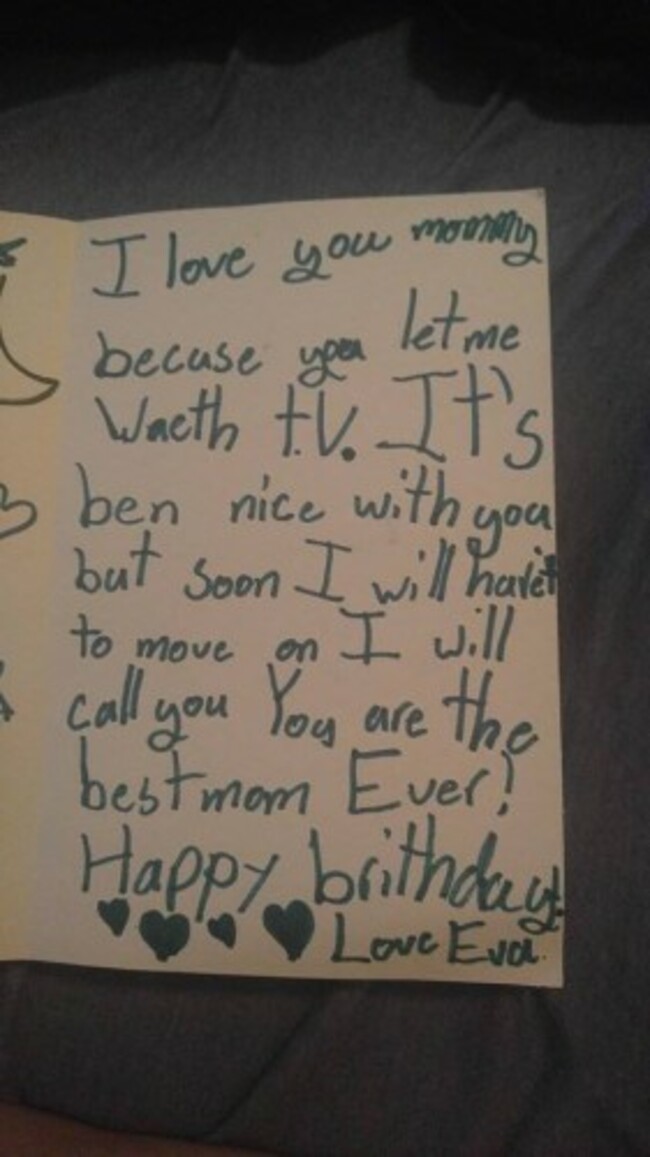 I love you mommy
becuse you let me
Wacth t.V. It's
ben nice with you
but soon I will have
to move on I will
call you You are the
best mom Ever!
Happy brithday!
Love Eva